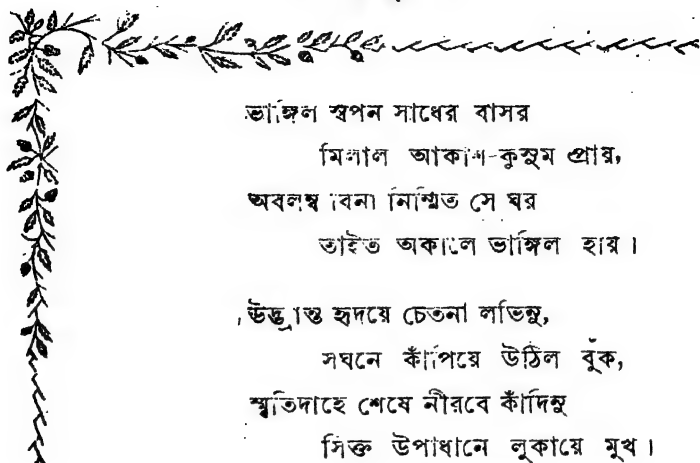 ভাঙ্গিল স্বপন সাধের বাসর
মিলাল আকাশ-কুসুম প্রায়,
অবলম্ব বিনা নির্ম্মিত সে ঘর
তাইত অকালে ভাঙ্গিল হায়।
উদ্ভ্রান্ত হৃদয়ে চেতনা লভিনু,
সঘনে কাঁপিয়ে উঠিল বুঁক,
স্মৃতিদাহে শেষে নীরবে কাঁদিনু
সিক্ত উপাধানে লুকায়ে মুখ।